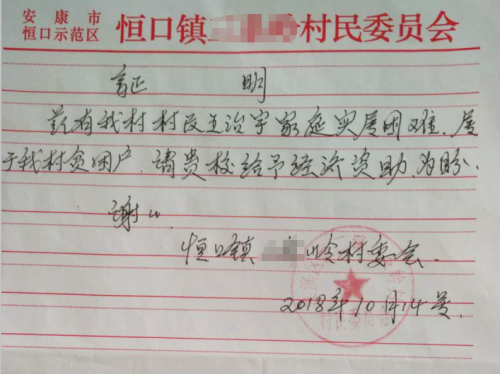 安康市
恒口示范区 恒口镇 村民委员会
证 明
兹有我村村民王治宇家庭实属困难,属
于我村贫困户,请贵校给予经济资助为盼.
谢谢
恒口镇 岭村委会.
2018年10月14号.